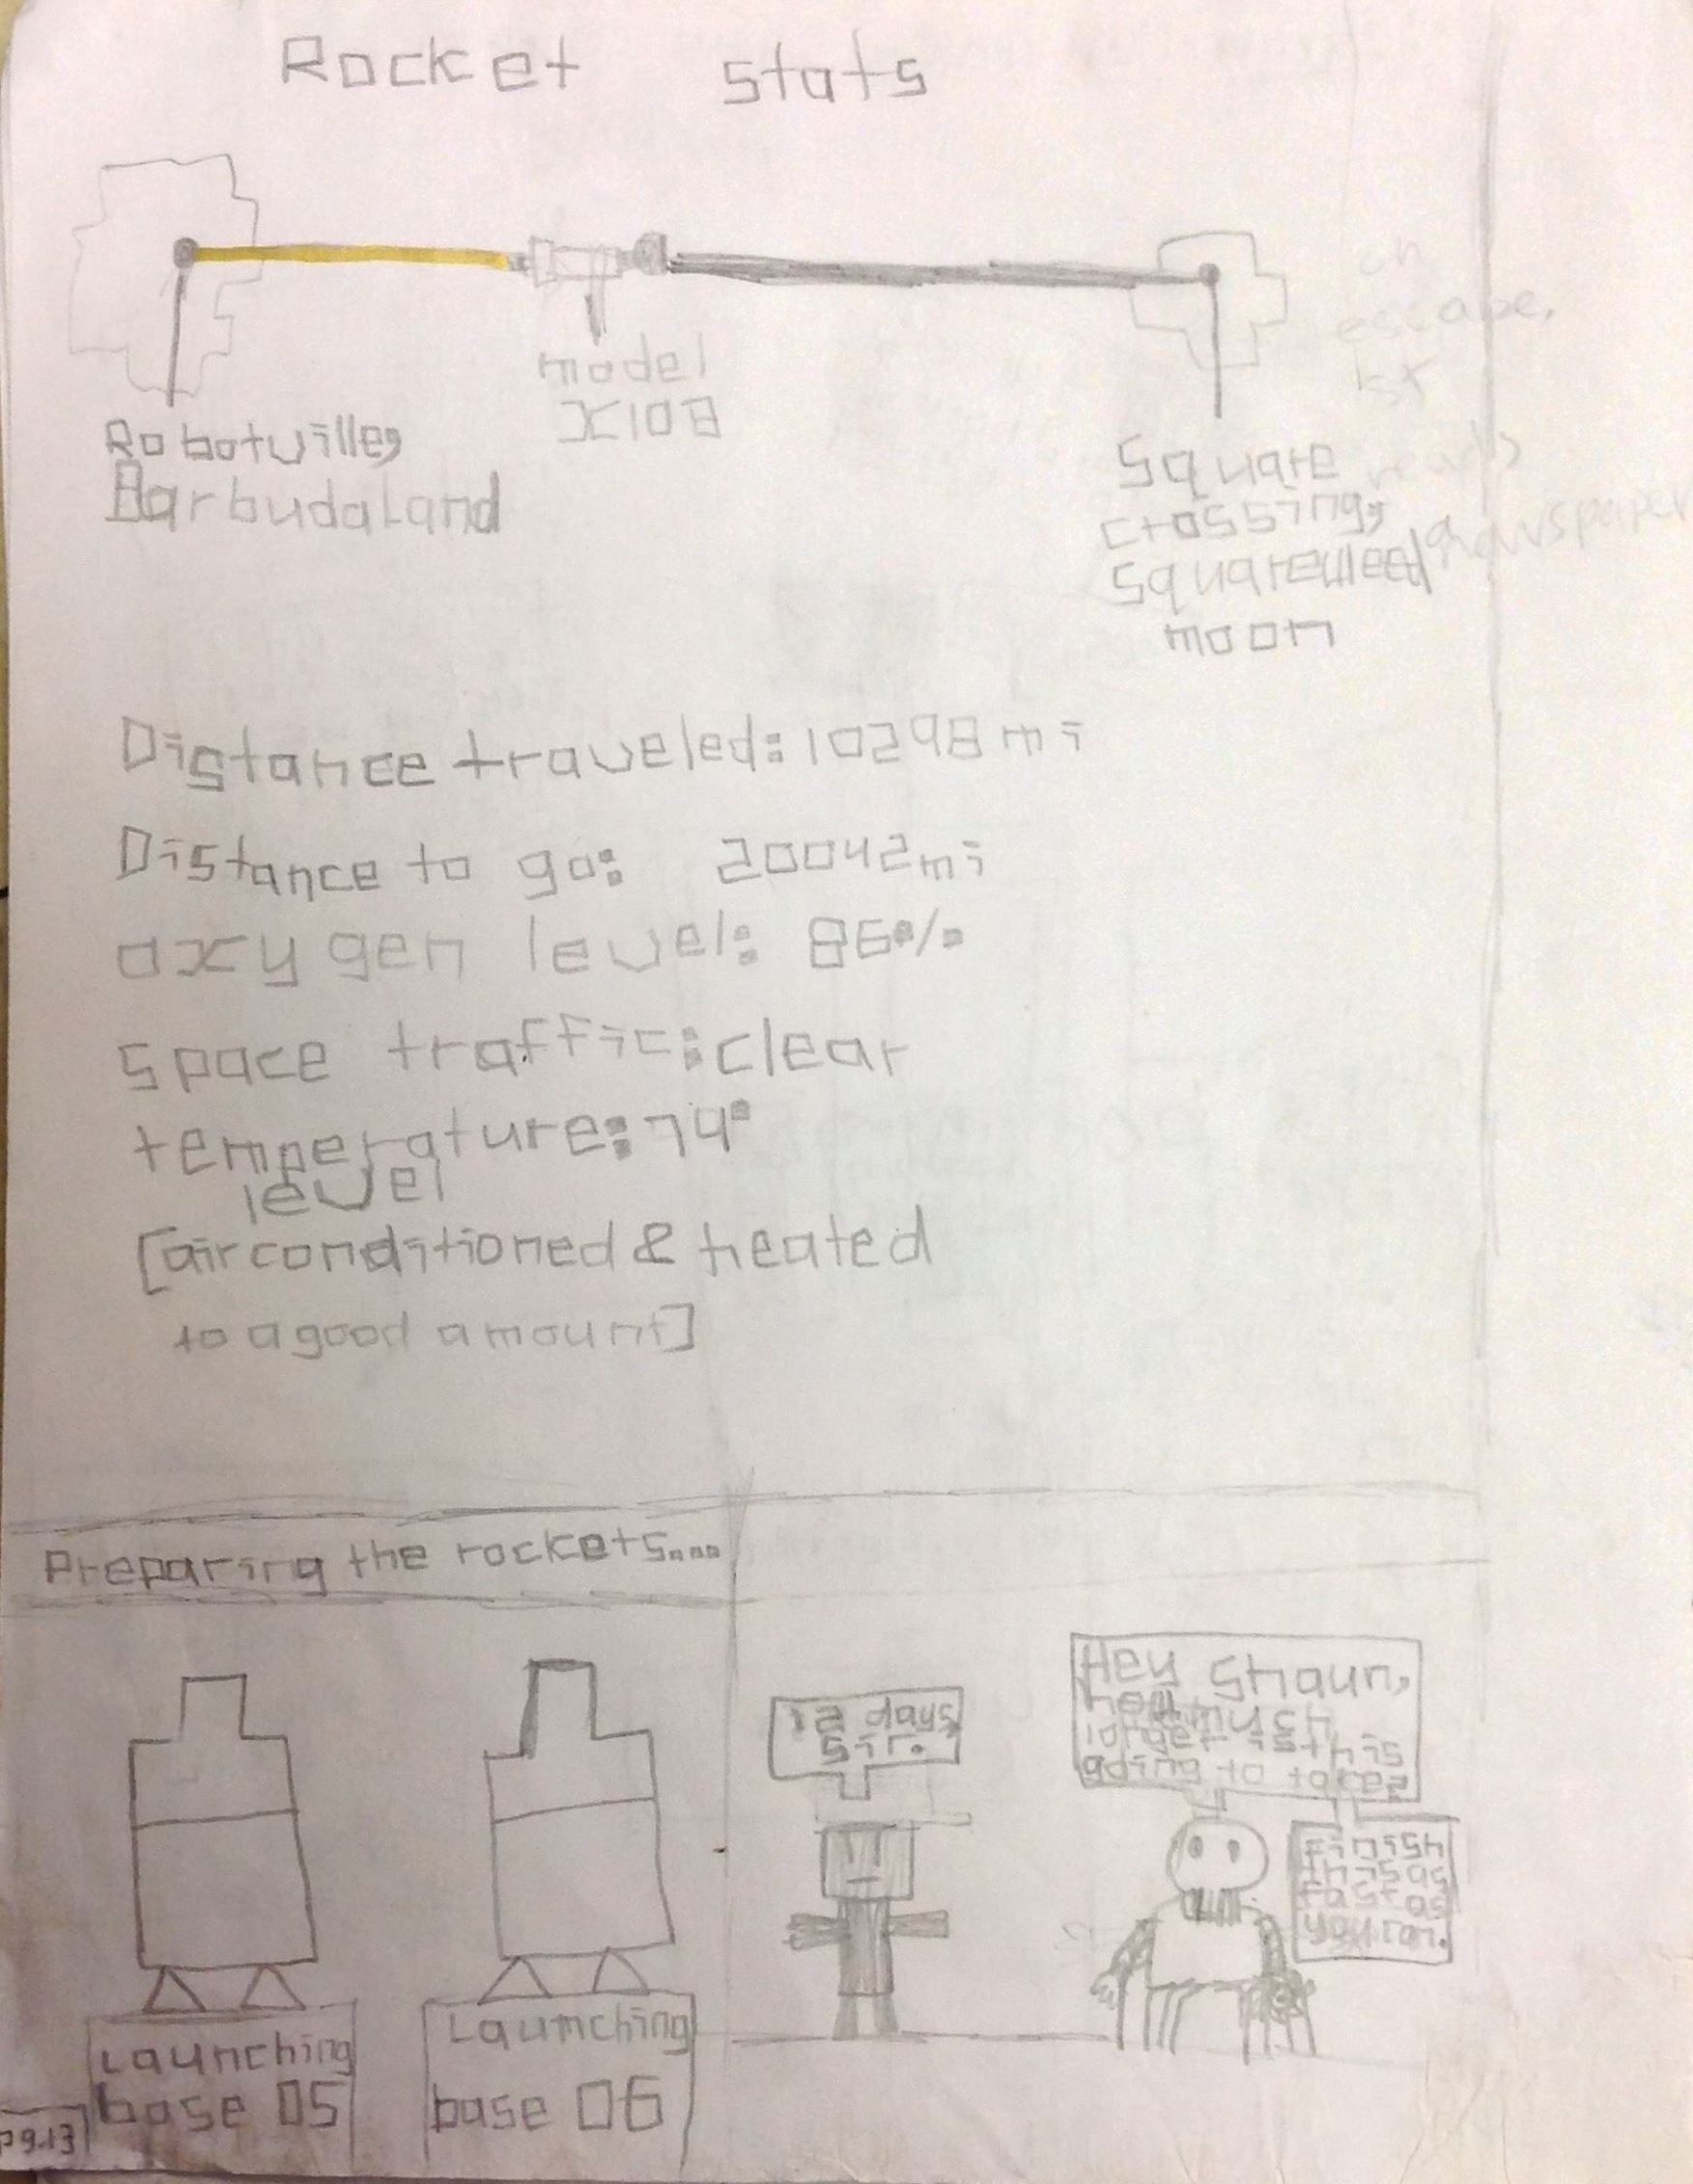 Rocket stats
on
escape,
model
X10B
Robotville,
Barbudaland
Square
crossing,
squareweed
moon
Distance traveled: 10298 mi
Distance to go: 20042mi
oxygen level: 86%
space traffic: clear
temperature: 74°
level
[airconditioned & heated
to a good amount]
Preparing the rockets....
12 days,
sir.
Hey Shaun,
how much
longer is this
going to take?
Finish
this as
fast as
you can.
Launching
base 05
Launching
base 06
pg.13